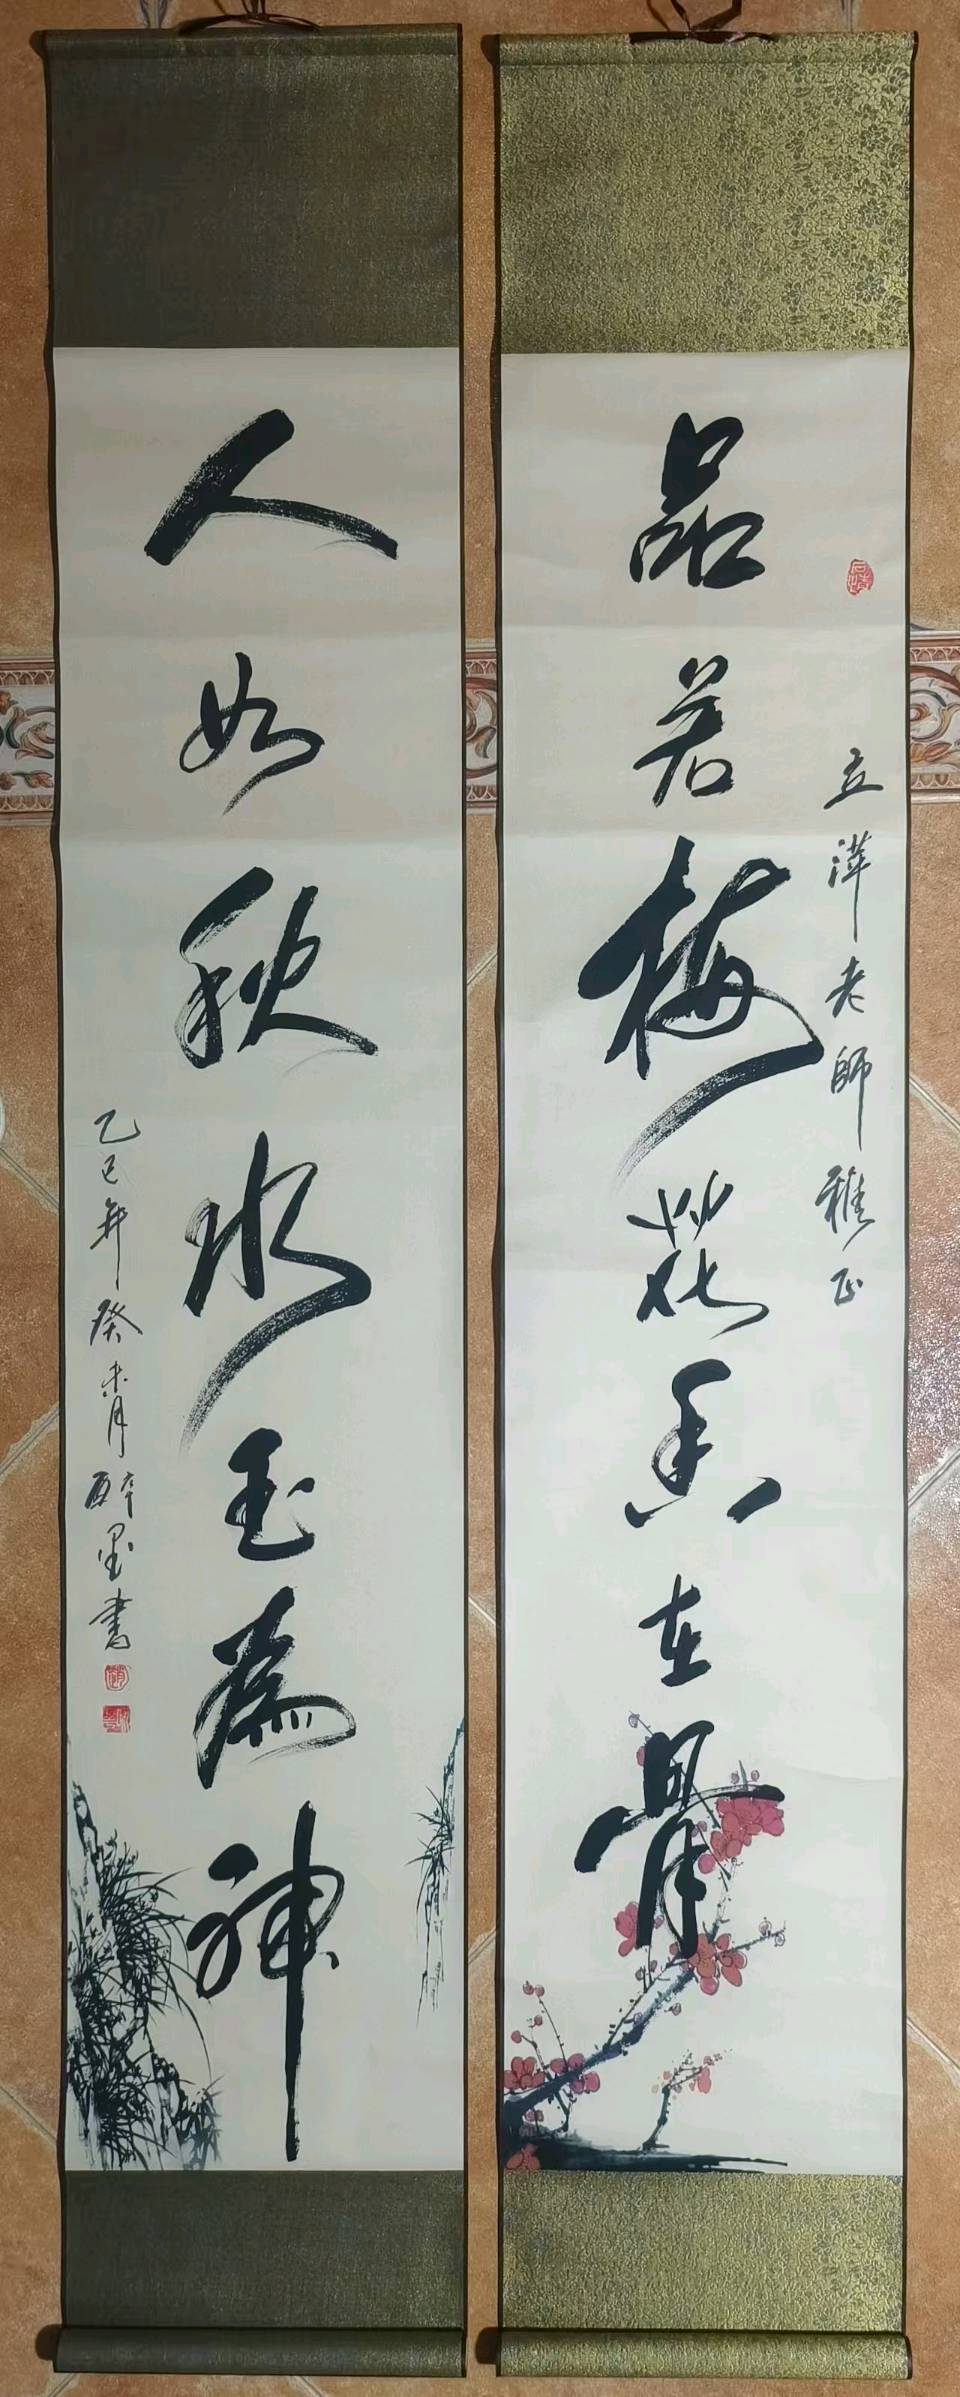 品若梅花香在骨
立萍老師雅正
人如秋水玉為神
乙巳年癸未月醉墨書